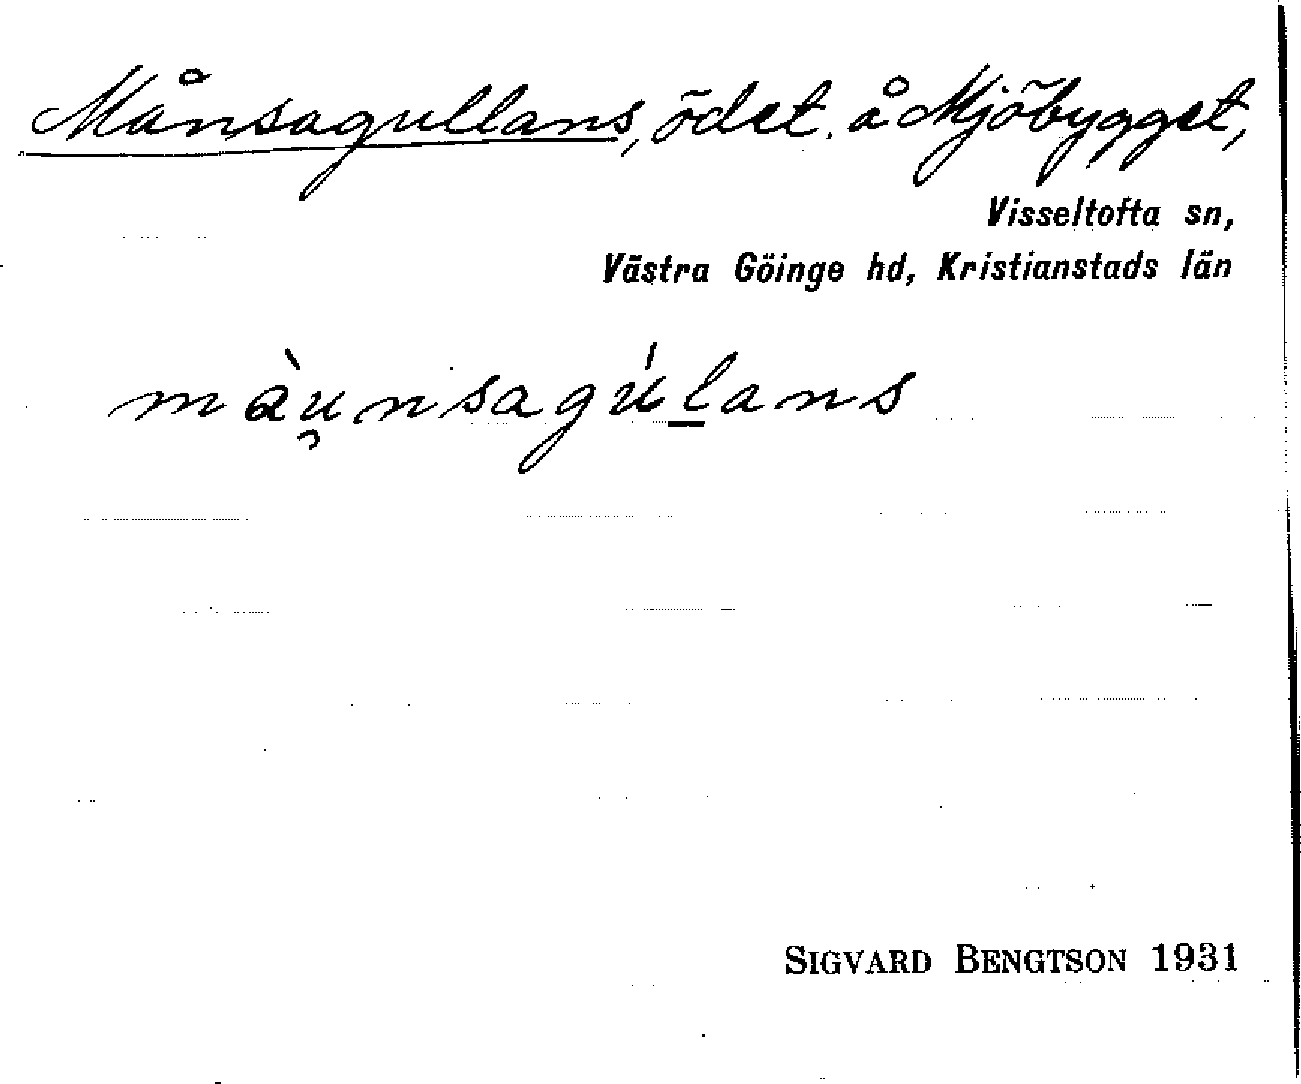 Månsagullans, ödet. å Mjöbygget,
Visseltofta sn,
Västra Göinge hd, Kristianstads län
màu̯nsagúl̲ans
SIGVARD BENGTSON 1931